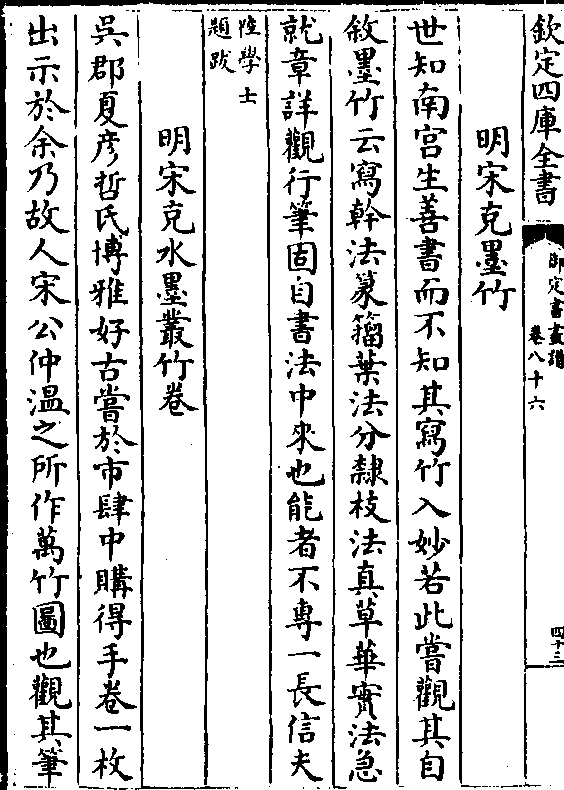 欽定四庫全書
御定書畫譜
卷八十六
四十三
明宋克墨竹
世知南宫生善書而不知其寫竹入妙若此嘗觀其自
敘墨竹云寫幹法篆籀葉法分隸枝法真草華實法急
就章詳觀行筆固自書法中來也能者不專一長信夫
陸學士
題跋
明宋克水墨叢竹卷
吳郡夏彦哲氏博雅好古嘗於市肆中購得手卷一枚
出示於余乃故人宋公仲溫之所作萬竹圖也觀其筆